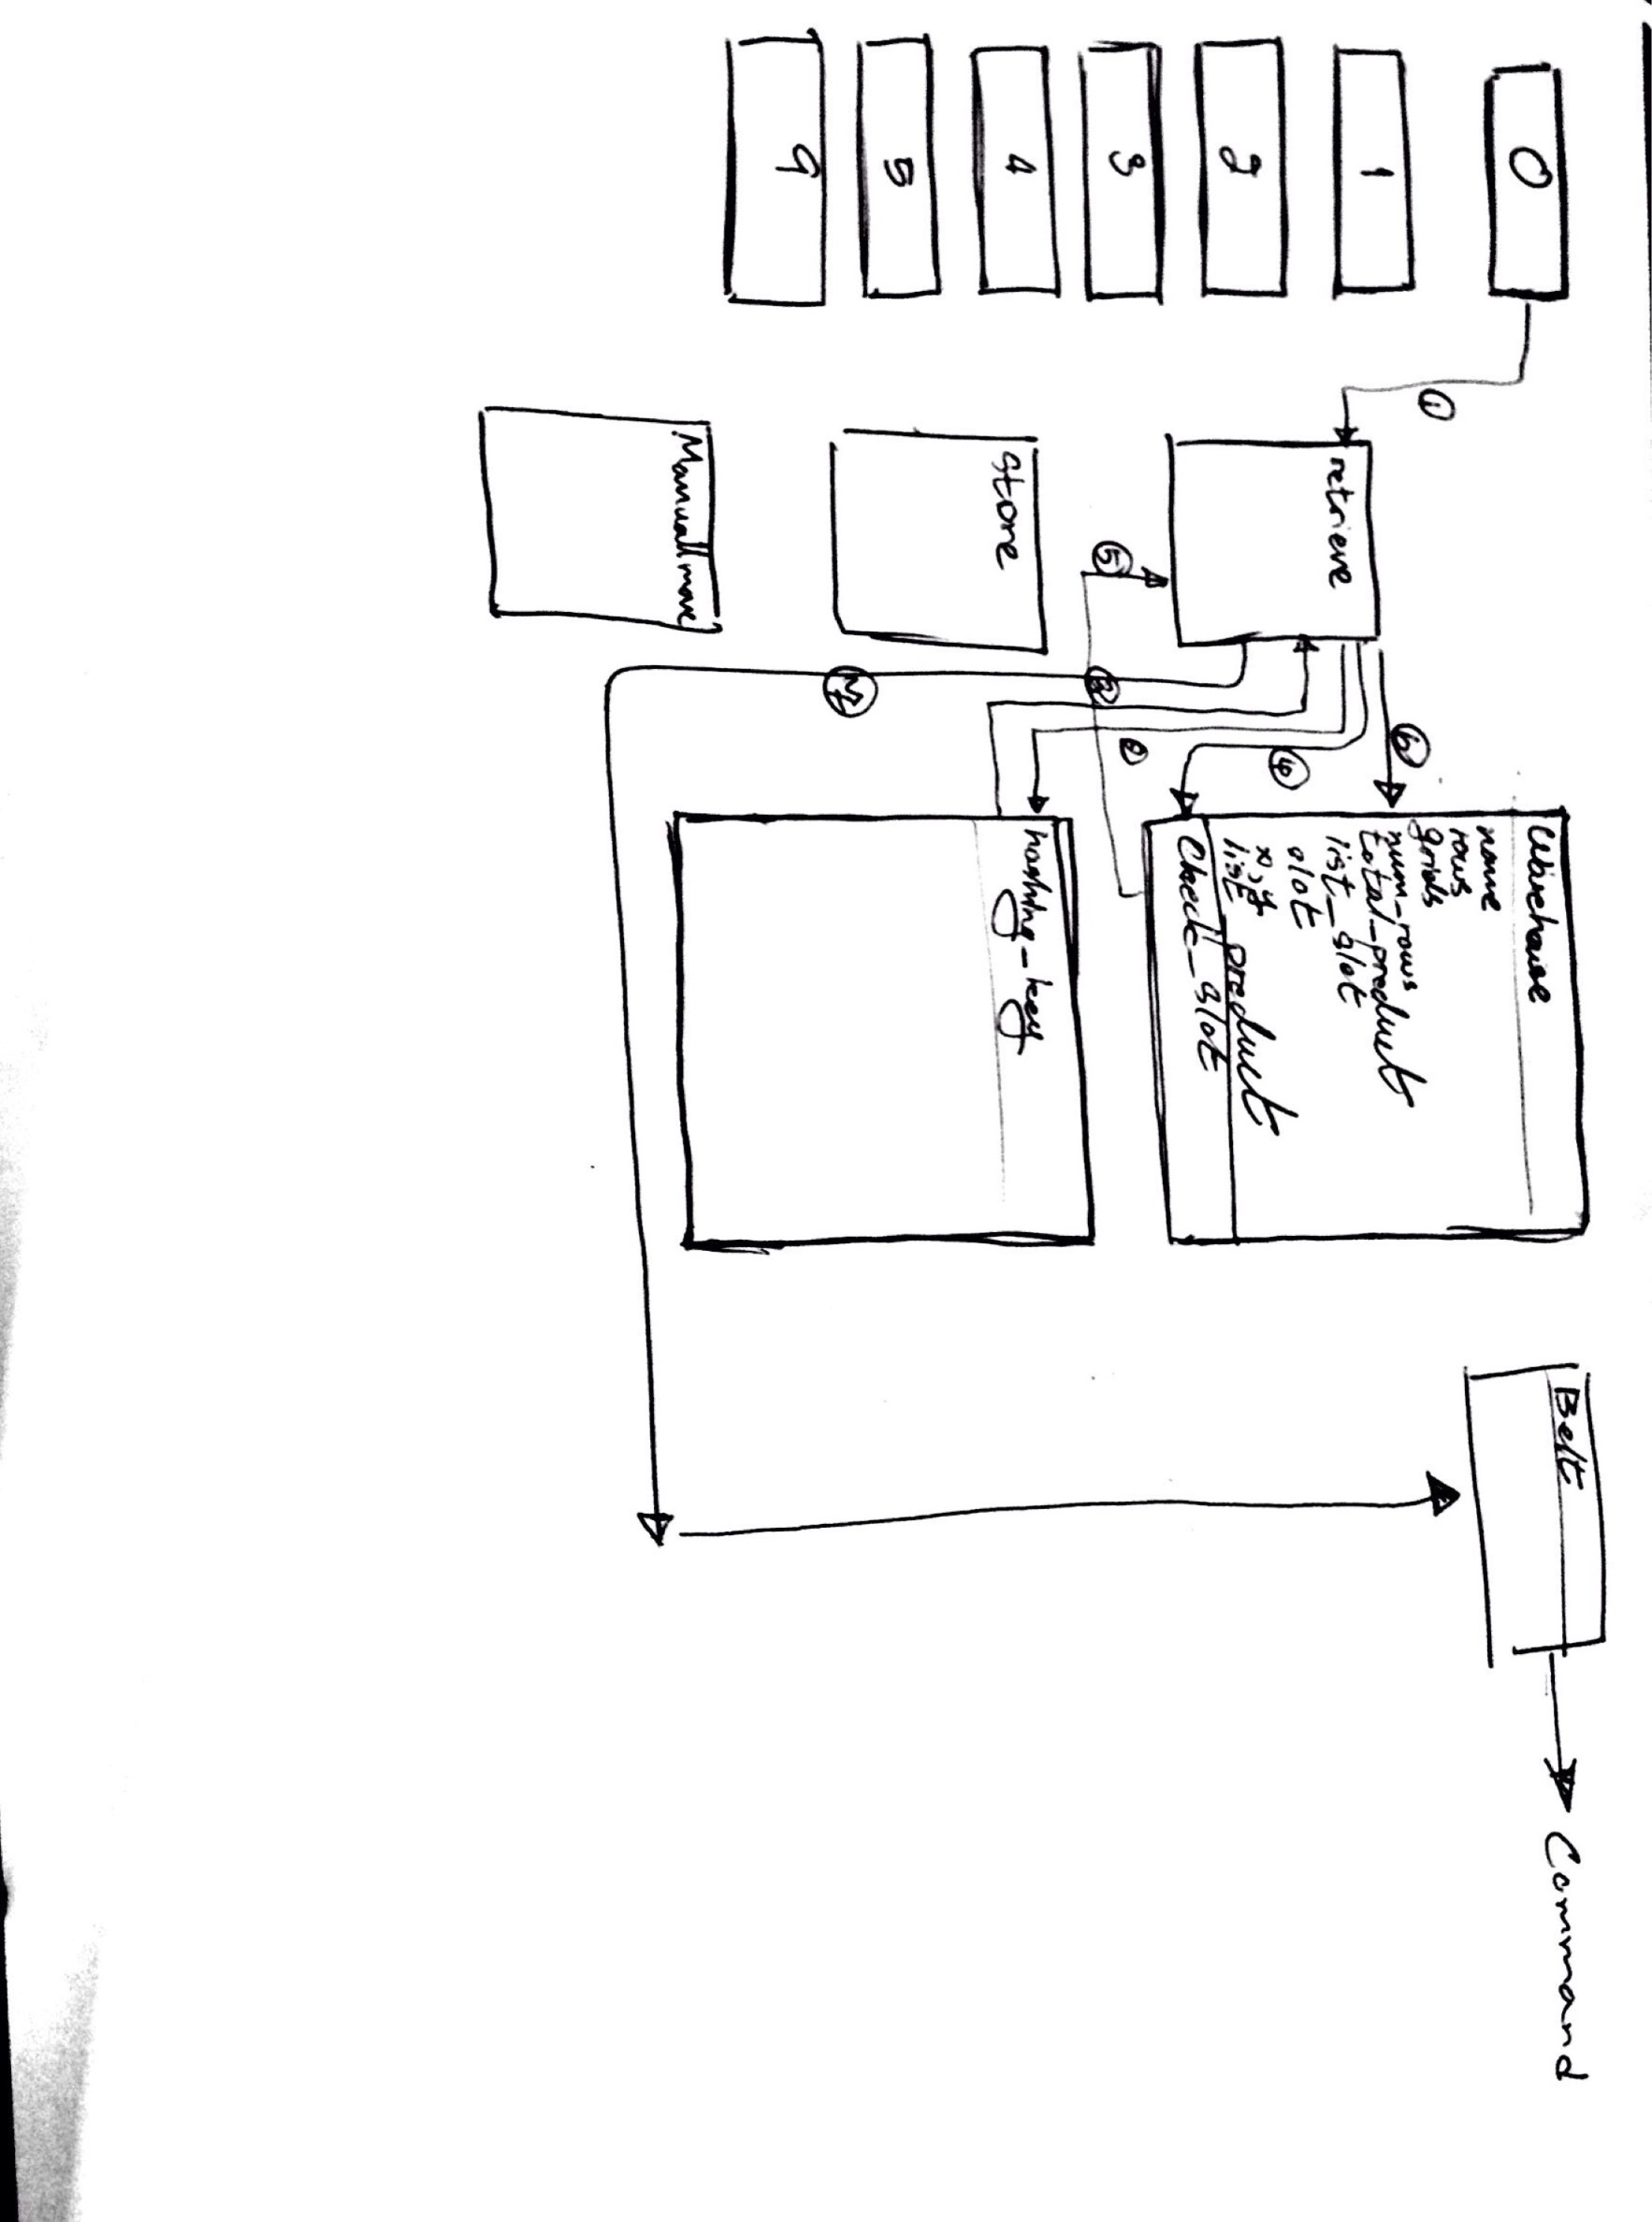 0
1
2
3
4
5
9
①
retrieve
⑥
④
②
③
⑤
Store
Manuall move
Warehouse
name
rows
grids
num_rows
total_product
list_slot
slot
x,y
list_product
Check_slot
hashing_key
Belt
Command